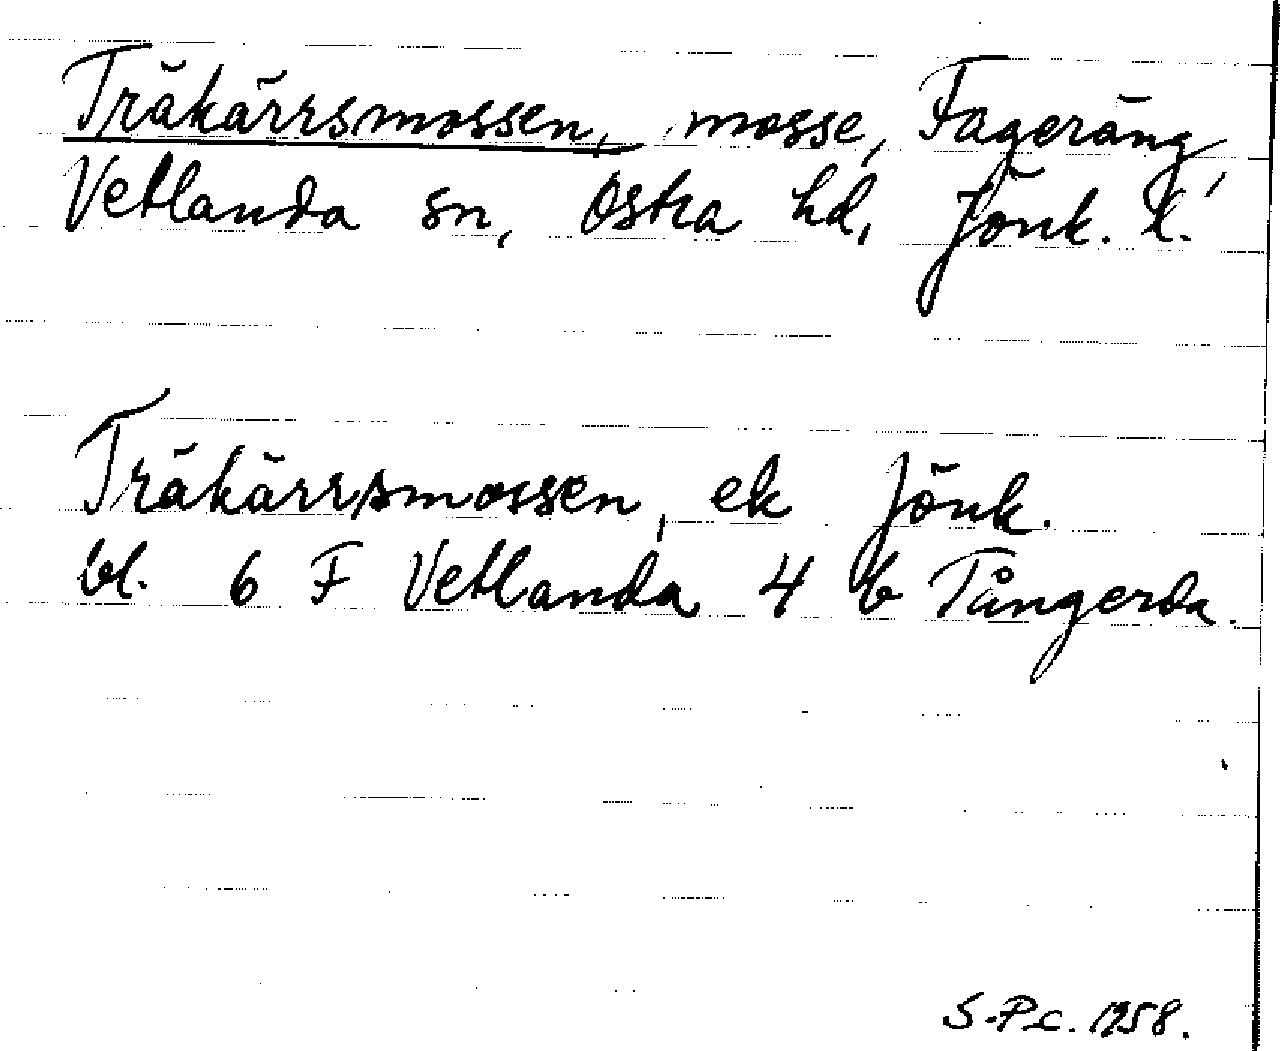 Träkärrsmossen, mosse, Fageräng,
Vetlanda sn, Östra hd, Jönk. l.
Träkärrsmossen, ek Jönk.
bl. 6 F Vetlanda 4 b Tångerda.
S.P-c. 1958.